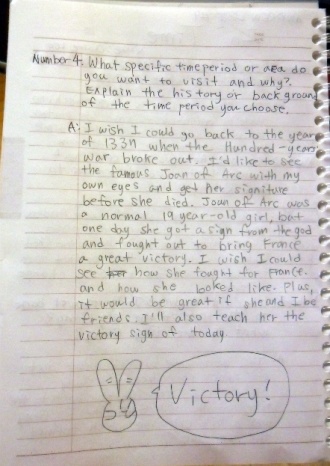 Number 4: What specific time period or aEa do
you want to visit and why?
Explain the history or back ground
of the time period you choose.
A: I wish I could go back to the year
of 1337 when the Hundred-years
war broke out. I'd like to see
the famous Joan of Arc with my
own eyes and get her signiture
before she died. Joan of Arc was
a normal 19 year-old girl, but
one day she got a sign from the god
and fought out to bring France
a great victory. I wish I could
see how she fought for France.
and how she looked like. Plus,
it would be great if she and I be
friends. I'll also teach her the
victory sign of today
Victory!